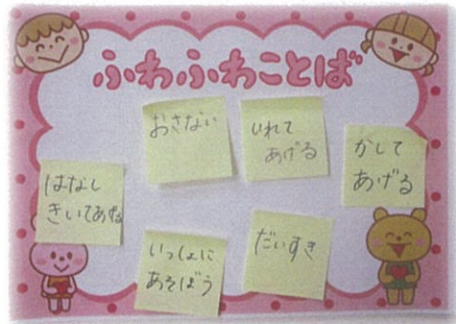 ふわふわことば
おさない
いれて
あげる
かして
あげる
はなし
きいてあげる
いっしょに
あそぼう
だいすき